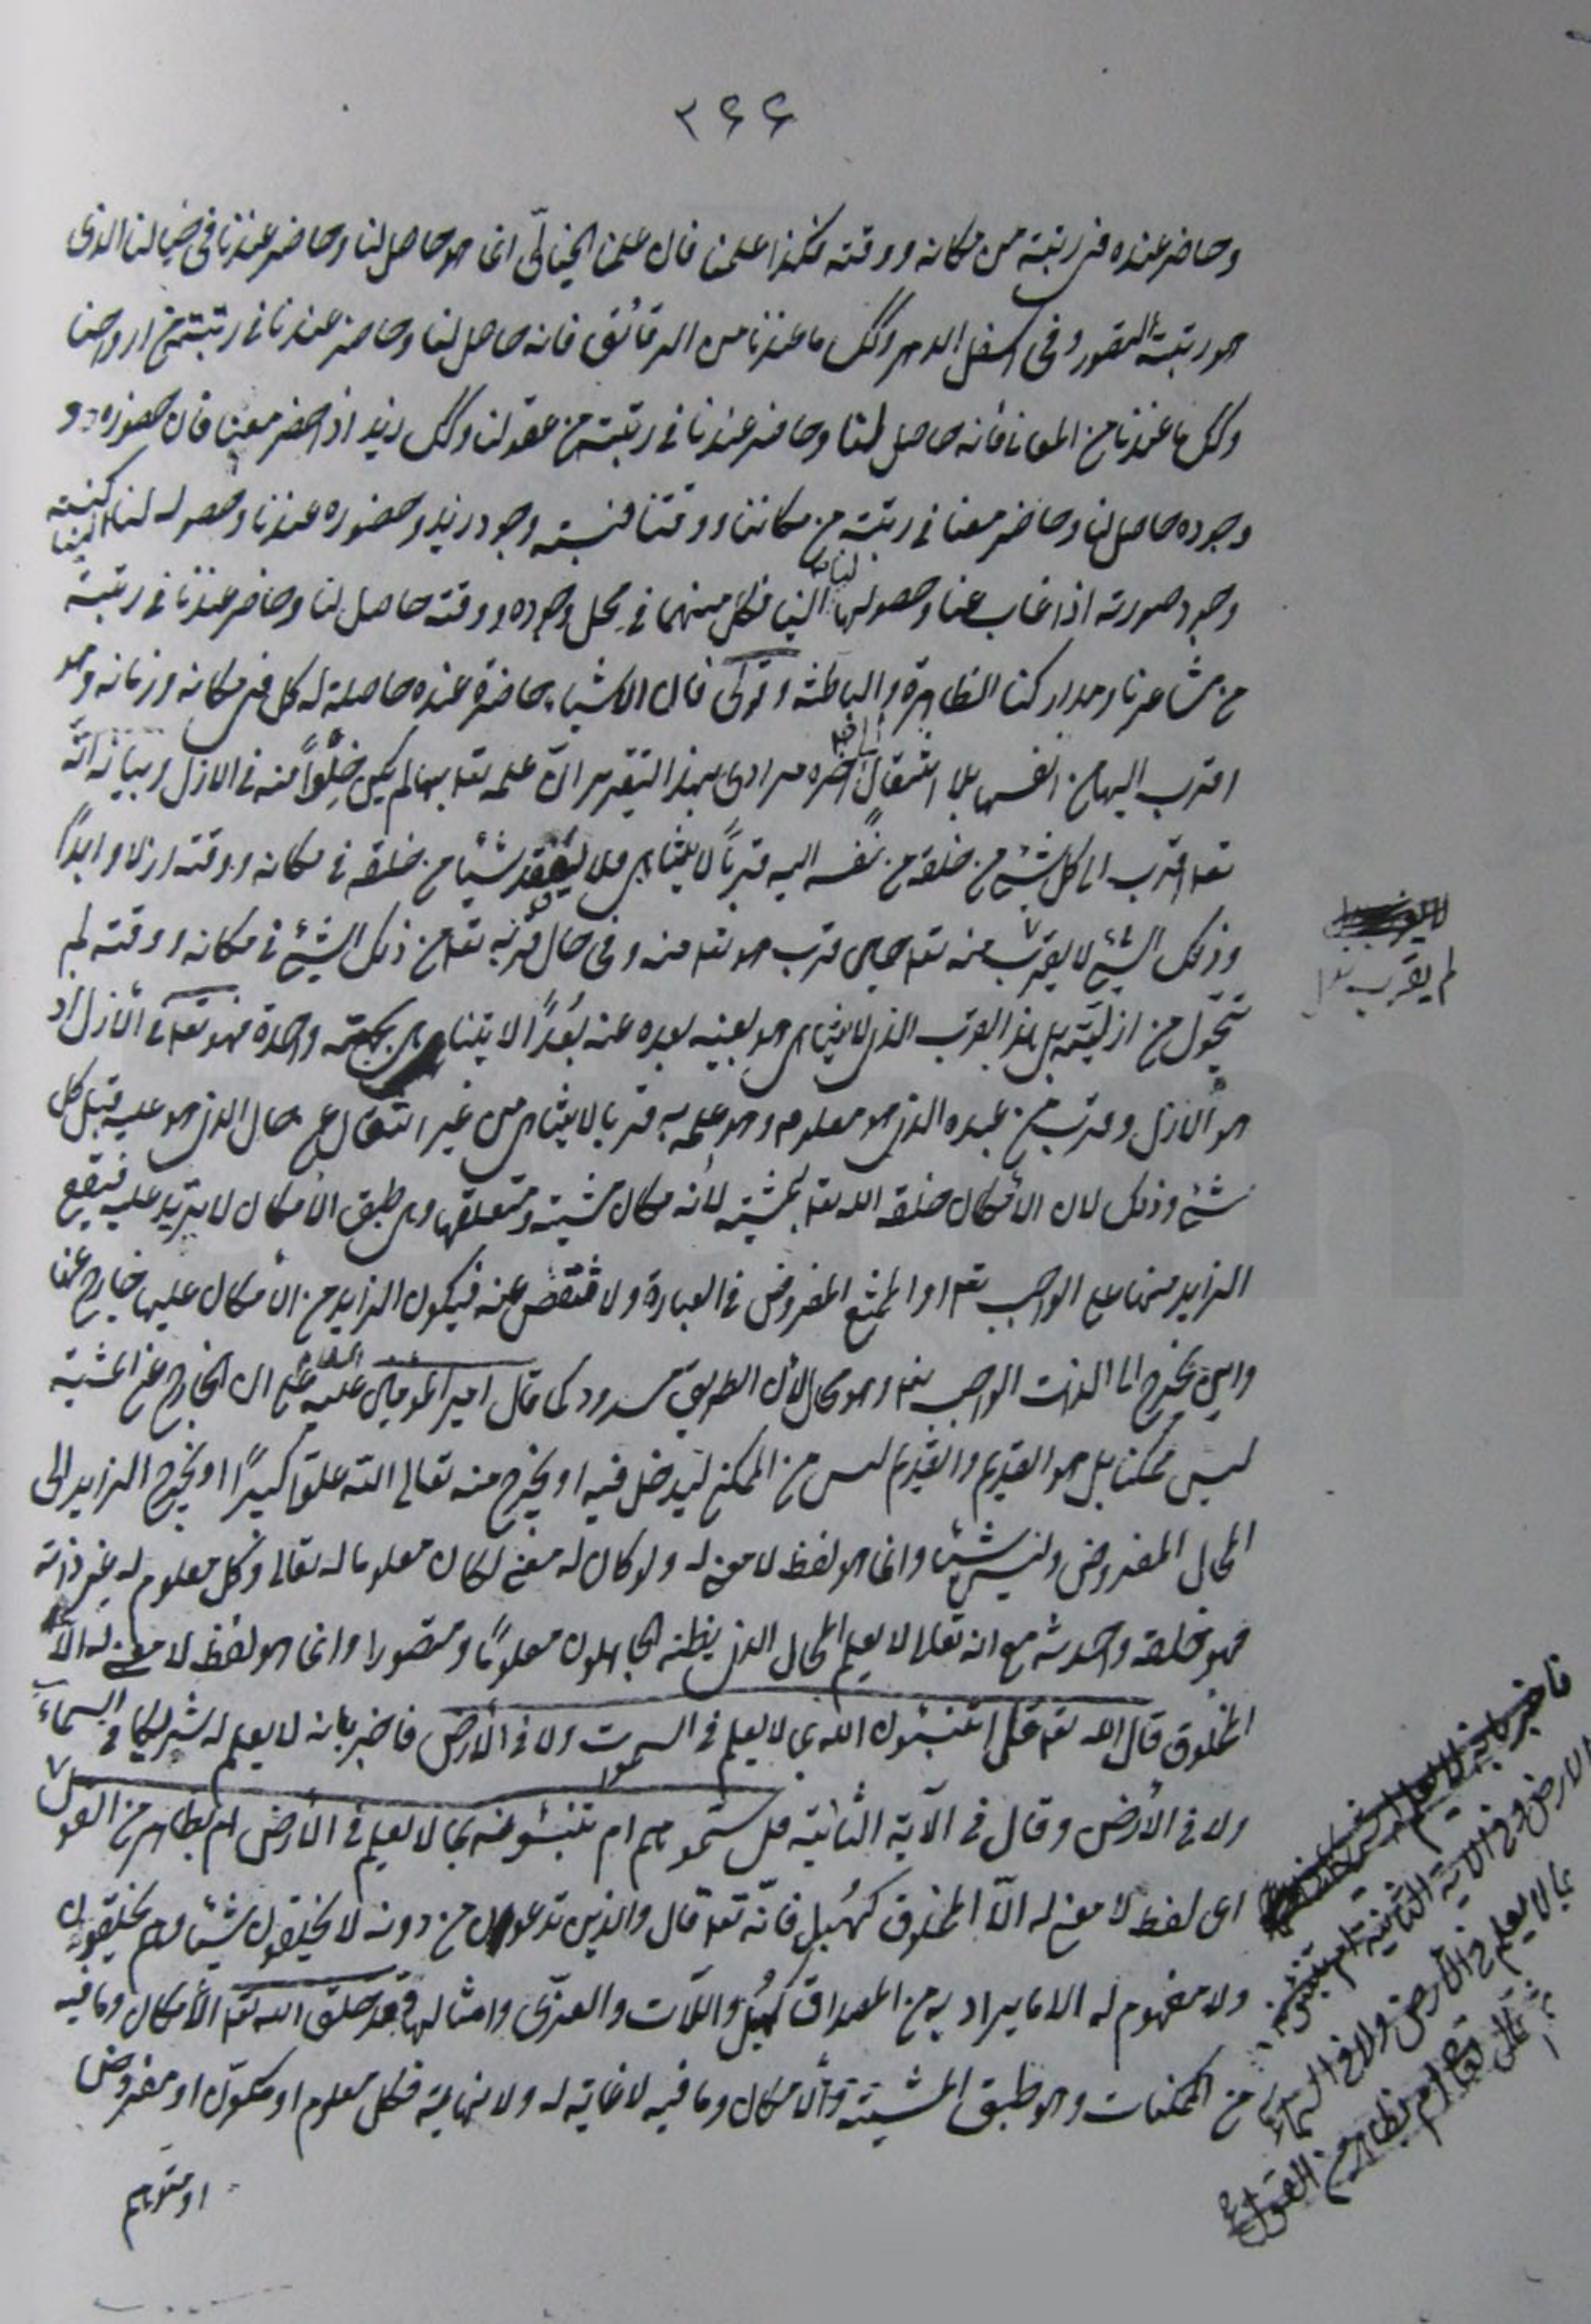 ٢٦٦
وحاضر عنده فى رتبته من مكانه ووقته فكذا علمنا فان علمنا الخيالّى انما هو حاصل لنا وحاضر عندنا فى خيالنا الذى
هو رتبة التصور وفى اسفل الدهر وكك ما عندنا من الرقائق فانه حاصل لنا وحاضر عندنا فى رتبته من ارواحنا
وكك ما عندنا من المعانى فانه حاصل لنا وحاضر عندنا فى رتبته من عقولنا وكك زيد اذا حضر معنا فان حضوره و
وجوده حاصل لنا وحاضر معنا فى رتبته من مكاننا ووقتنا فنسبة وجود زيد وحضوره عندنا وحصوله لنا الينا كنسبة
وجود صورته اذا غاب عنا وحصولها لنا الينا فكل منهما فى محل وجوده ووقته حاصل لنا وحاضر عندنا فى رتبته
من مشاعرنا ومداركنا الظاهرة والباطنة وقولى فان الاشياء حاضرة عنده حاصلة له كل فى مكانه وزمانه وهو
اقرب اليها من انفسها بلا انتقال الى اخره مرادى بهذا التقرير انّ علمه تعا بها لم يكن خِلْواً منه فى الازل وبيانه انّه
تعا اقرب الى كل شئ من خلقه من نفسه اليه قرباً لا يتناهى فلا يفقد شيئا من خلقه فى مكانه ووقته ازلا وابداً
وذلك الشئ لا يقرب منه تعا حين قرب هو تعا منه وفى حال قربه تعا من ذلك الشئ فى مكانه ووقته لم
يتحّول من ازليّته بل هذا القرب الذى لا يتناهى هو بعينه بعده عنه بُعداً لا يتناهى بجهة واحدة فهو تعا فى الأزل اذ
هو الازل وقرب من عبده الذى هو معلومه وهو علمه به قربا لا يتناهى من غير انتقال عن حال الذى هو عليه قبل كل
شئ وذلك لان الأمكان خلقه الله تعا بمشيته لأنه مكان مشيته ومتعلقها وهى طبق الأمكان لا تزيد عليه فيقع
الزايد منها على الواجب تعا او الممتنع المفروض فى العبارة ولا تنقص عنه فيكون الزايد من الأمكان عليها خارج عنها
واين يخرج الى الذات الواجب تعا وهو محال لأن الطريق مسدود كما قال امير المؤمنين عليه السلام على ان الخارج عن المشية
ليس ممكنا بل هو القديم والقديم ليس من الممكن ليدخل فيه او يخرج منه تعالى الله علوّا كبيرًا او يخرج الزايد الى
المحال المفروض وليس شيئا وانما هو لفظ لا معنى له ولو كان له معنى لكان معلوما له تعالى وكل معلوم له غير ذاته
فهو خلقه واحدثه مع انه تعالى لا يعلم المحال الذى يظنه الجاهلون معلومًا ومتصورا وانما هو لفظ لا معنى له الّا
المخلوق قال الله تعا قل اتنبئون الله بما لا يعلم فى السموات ولا فى الأرض فاخبر بانه لا يعلم له شريكا فى السماء
ولا فى الأرض وقال فى الآية الثانية قل سمّوهم ام تنبئونه بما لا يعلم فى الأرض ام بظاهر من القول
اى لفظ لا معنى له الّا المخلوق كهُبل فانّه تعا قال والذين تدعون من دونه لا يخلقون شيئا وهم يخلقون
ولا مفهوم له الا ما يراد به من المصداق كهُبل واللّات والعزّى وامثالها فقد خلق الله تعا الأمكان وما فيه
من الممكنات وهو طبق المشية والأمكان وما فيه لا غاية له ولا نهاية فكل معلوم او مكوّن او مفروض
او متوهم
لم يقرب تعا
الارض وفى الاية الثانية ام تنبئونه
بما لا يعلم فى الأرض ولا فى السماء
ام بظاهر من القول